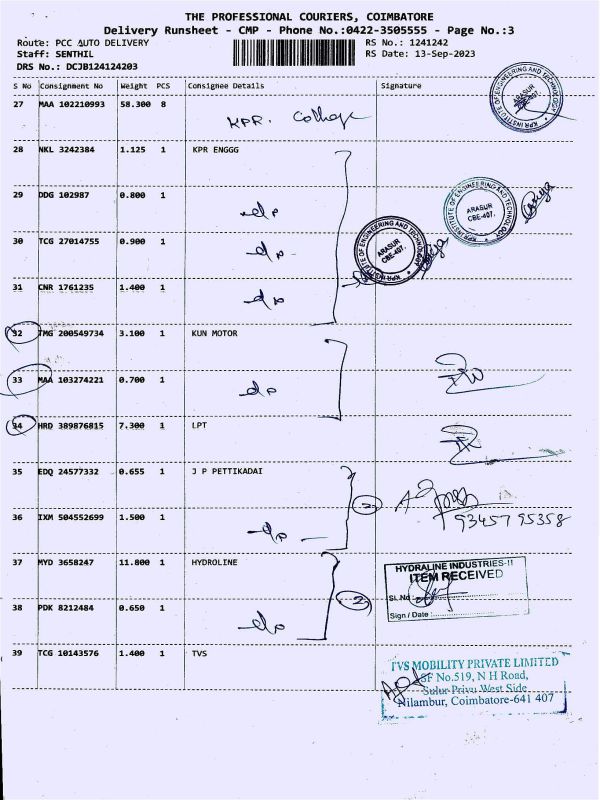 THE PROFESSIONAL COURIERS, COIMBATORE
Delivery Runsheet - CMP - Phone No.:0422-3505555 - Page No.:3
Route: PCC AUTO DELIVERY RS No.: 1241242
Staff: SENTHIL RS Date: 13-Sep-2023
DRS No.: DCJB124124203
S No Consignment No Weight PCS Consignee Details Signature
27 MAA 102210993 58.300 8
KPR. College
KPR INSTITUTE OF ENGINEERING AND TECHNOLOGY
ARASUR
CBE-407.
28 NKL 3242384 1.125 1 KPR ENGGG
29 DDG 102987 0.800 1 do
KPR INSTITUTE OF ENGINEERING AND TECHNOLOGY
ARASUR
CBE-407.
30 TCG 27014755 0.900 1 do
KPR INSTITUTE OF ENGINEERING AND TECHNOLOGY
ARASUR
CBE-407.
31 CNR 1761235 1.400 1 do
32 TMG 200549734 3.100 1 KUN MOTOR
33 MAA 103274221 0.700 1 do
34 HRD 389876815 7.300 1 LPT
35 EDQ 24577332 0.655 1 J P PETTIKADAI
2
93457 95358
36 IXM 504552699 1.500 1 do
37 MYD 3658247 11.800 1 HYDROLINE
HYDRALINE INDUSTRIES-II
ITEM RECEIVED
Sl. No :
Sign / Date :
2
38 PDK 8212484 0.650 1 do
39 TCG 10143576 1.400 1 TVS
TVS MOBILITY PRIVATE LIMITED
SF No.519, N H Road,
Sulur Privu West Side
Nilambur, Coimbatore-641 407